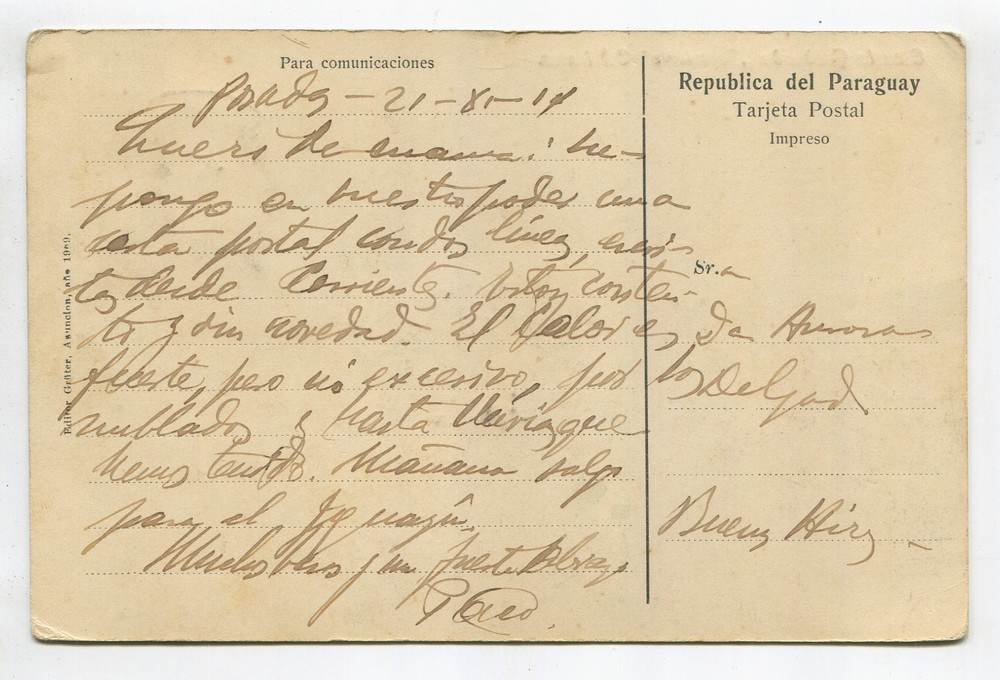 Para comunicaciones
Posadas - 21 - XI - 14
mamá: su-
pongo en vuestro poder una
esta postal con dos líneas escri-
tas desde Corrientes. Estoy conten-
to y sin novedad. El calor es
fuerte, pero no excesivo, por los
nublados y hasta lluvias que
hemos tenido. Mañana salgo
para el Yguazú.
Muchos besos y un fuerte abrazo
Editor Grüter, Asuncion, año 1909.
Republica del Paraguay
Tarjeta Postal
Impreso
Sr.a
Da Aurora
Delgado
Buenos Aires